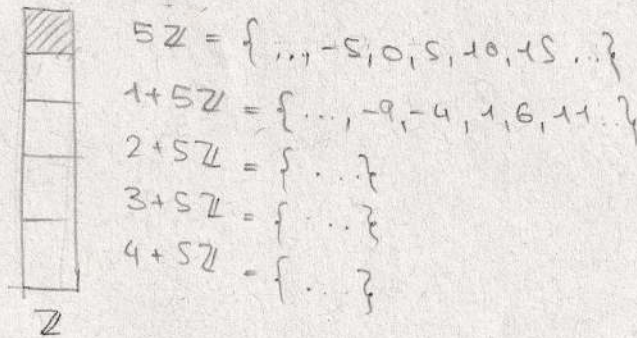 5ℤ = { ..., -5, 0, 5, 10, 15 ...}
1+5ℤ = { ..., -9, -4, 1, 6, 11 ..}
2+5ℤ = { ....}
3+5ℤ = { ....}
4+5ℤ = { ....}
ℤ